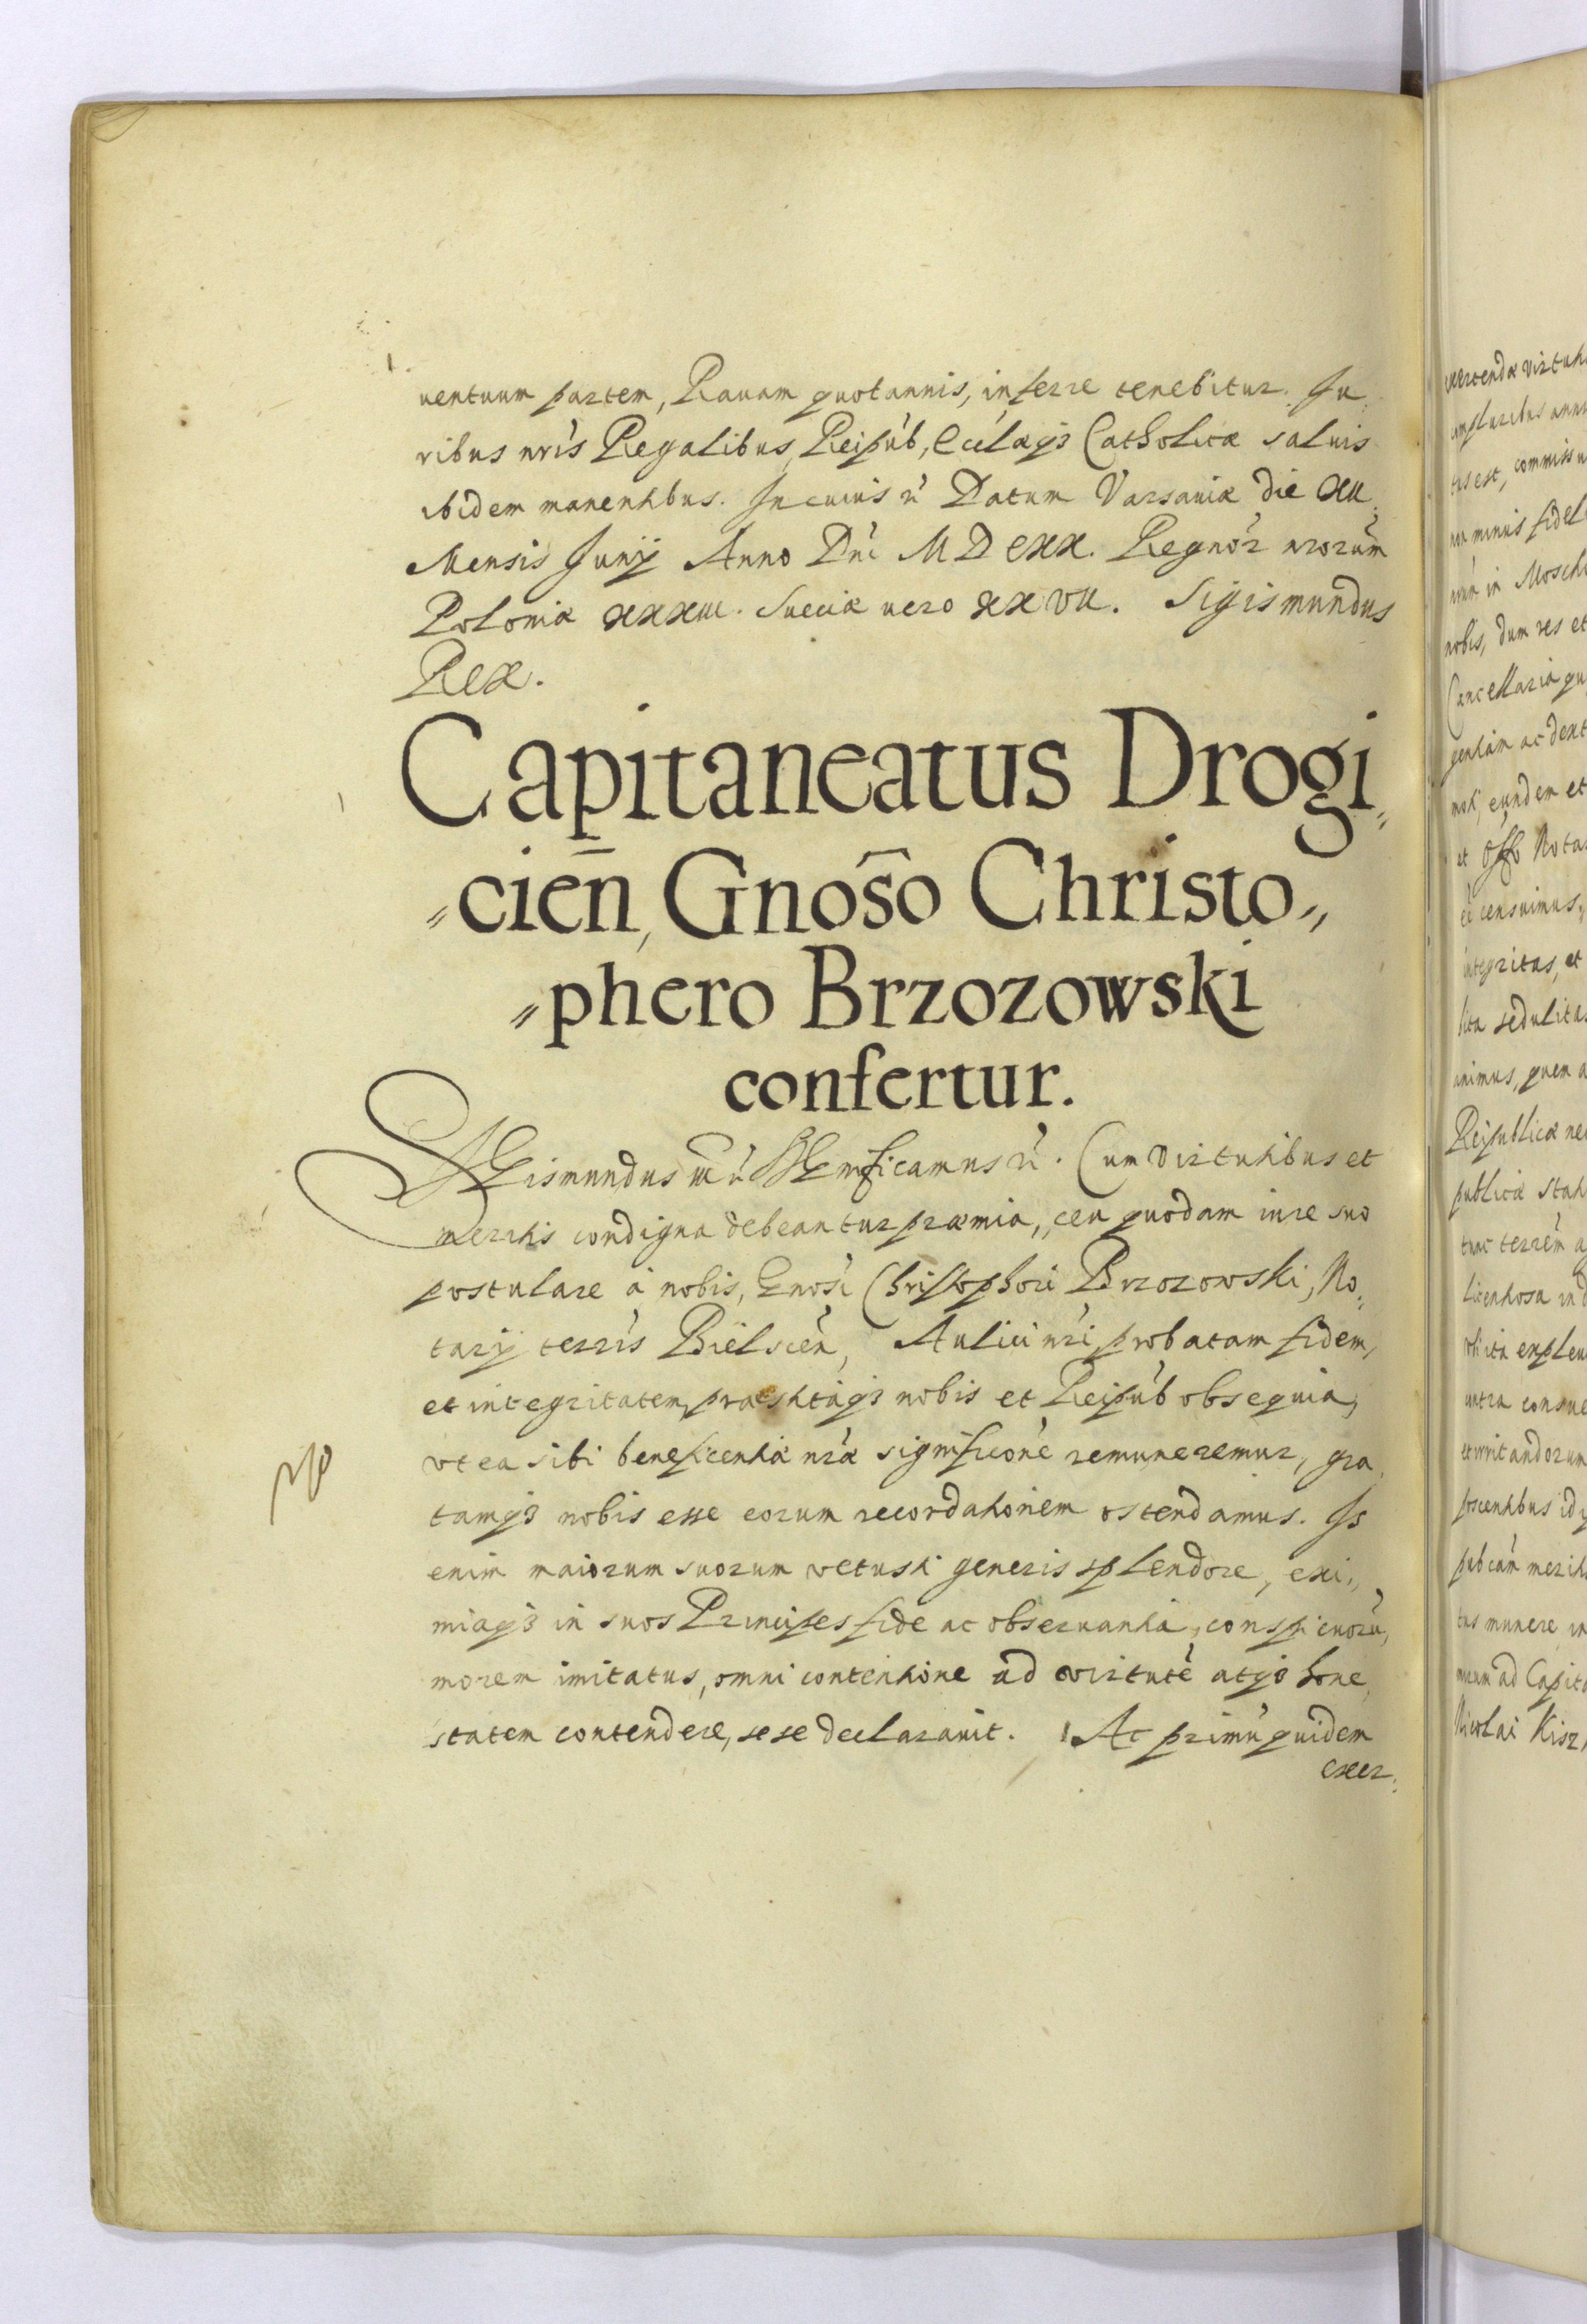 uentuum partem, Rauam quotannis, inferre tenebitur. Iu,
ribus nris Regalibus, Reipub, Ecclaqȝ Catholicæ saluis
ibidem manentibus. In cuius rˀ Datum Varsauiæ die XII
Mensis Iunij Anno Dni MDCXX. Regnor nrorum
Poloniæ XXXIII. Sueciæ uero XXVII. Sigismundus
Rex.
Capitaneatus Drogi„
„cien̄, Gnoso Christo„
„phero Brzozowski
confertur.
SIGismundus III rˀ Significamus rˀ. Cum virtutibus et
meritis condigna debeantur præmia, ceu quodam iure suo
postulare à nobis, Gnosi Christophori Brzozowski, No„
tarij terris Bielscen, Aulici nri, probatam fidem,
et integritatem, præstitaqȝ nobis et Reipub obsequia,
vt ea sibi beneficentiæ nræ significone remuneremur, gra„
tamqȝ nobis esse eorum recordationem ostendamus. Is
enim maiorum suorum vetusti generis splendore, exi„
miaqȝ in suos Principes fide ac obseruantia, conspicuoru,
morem imitatus, omni contentione ad virtute atqȝ hone„
statem contendere, sese declarauit. Ac primu quidem
exer„
uertendæ virtuti
compluribus anni
tus est, commissu
non minus fidel
num in Moschi
nobis, dum res et
Cancellaria qu
gentiam ac dext
nski, eundem et
et Offo Nota
ee censuimus,
integritas, et
lita sedulitas
animus, quem a
Reipublicæ ne
publicæ stat
tunc terrem a
licentiosa in d
intra consue
et irritandorum
poscentibus id
pubcam merit
tus munere in
num ad Capita
Nicolai Kisz